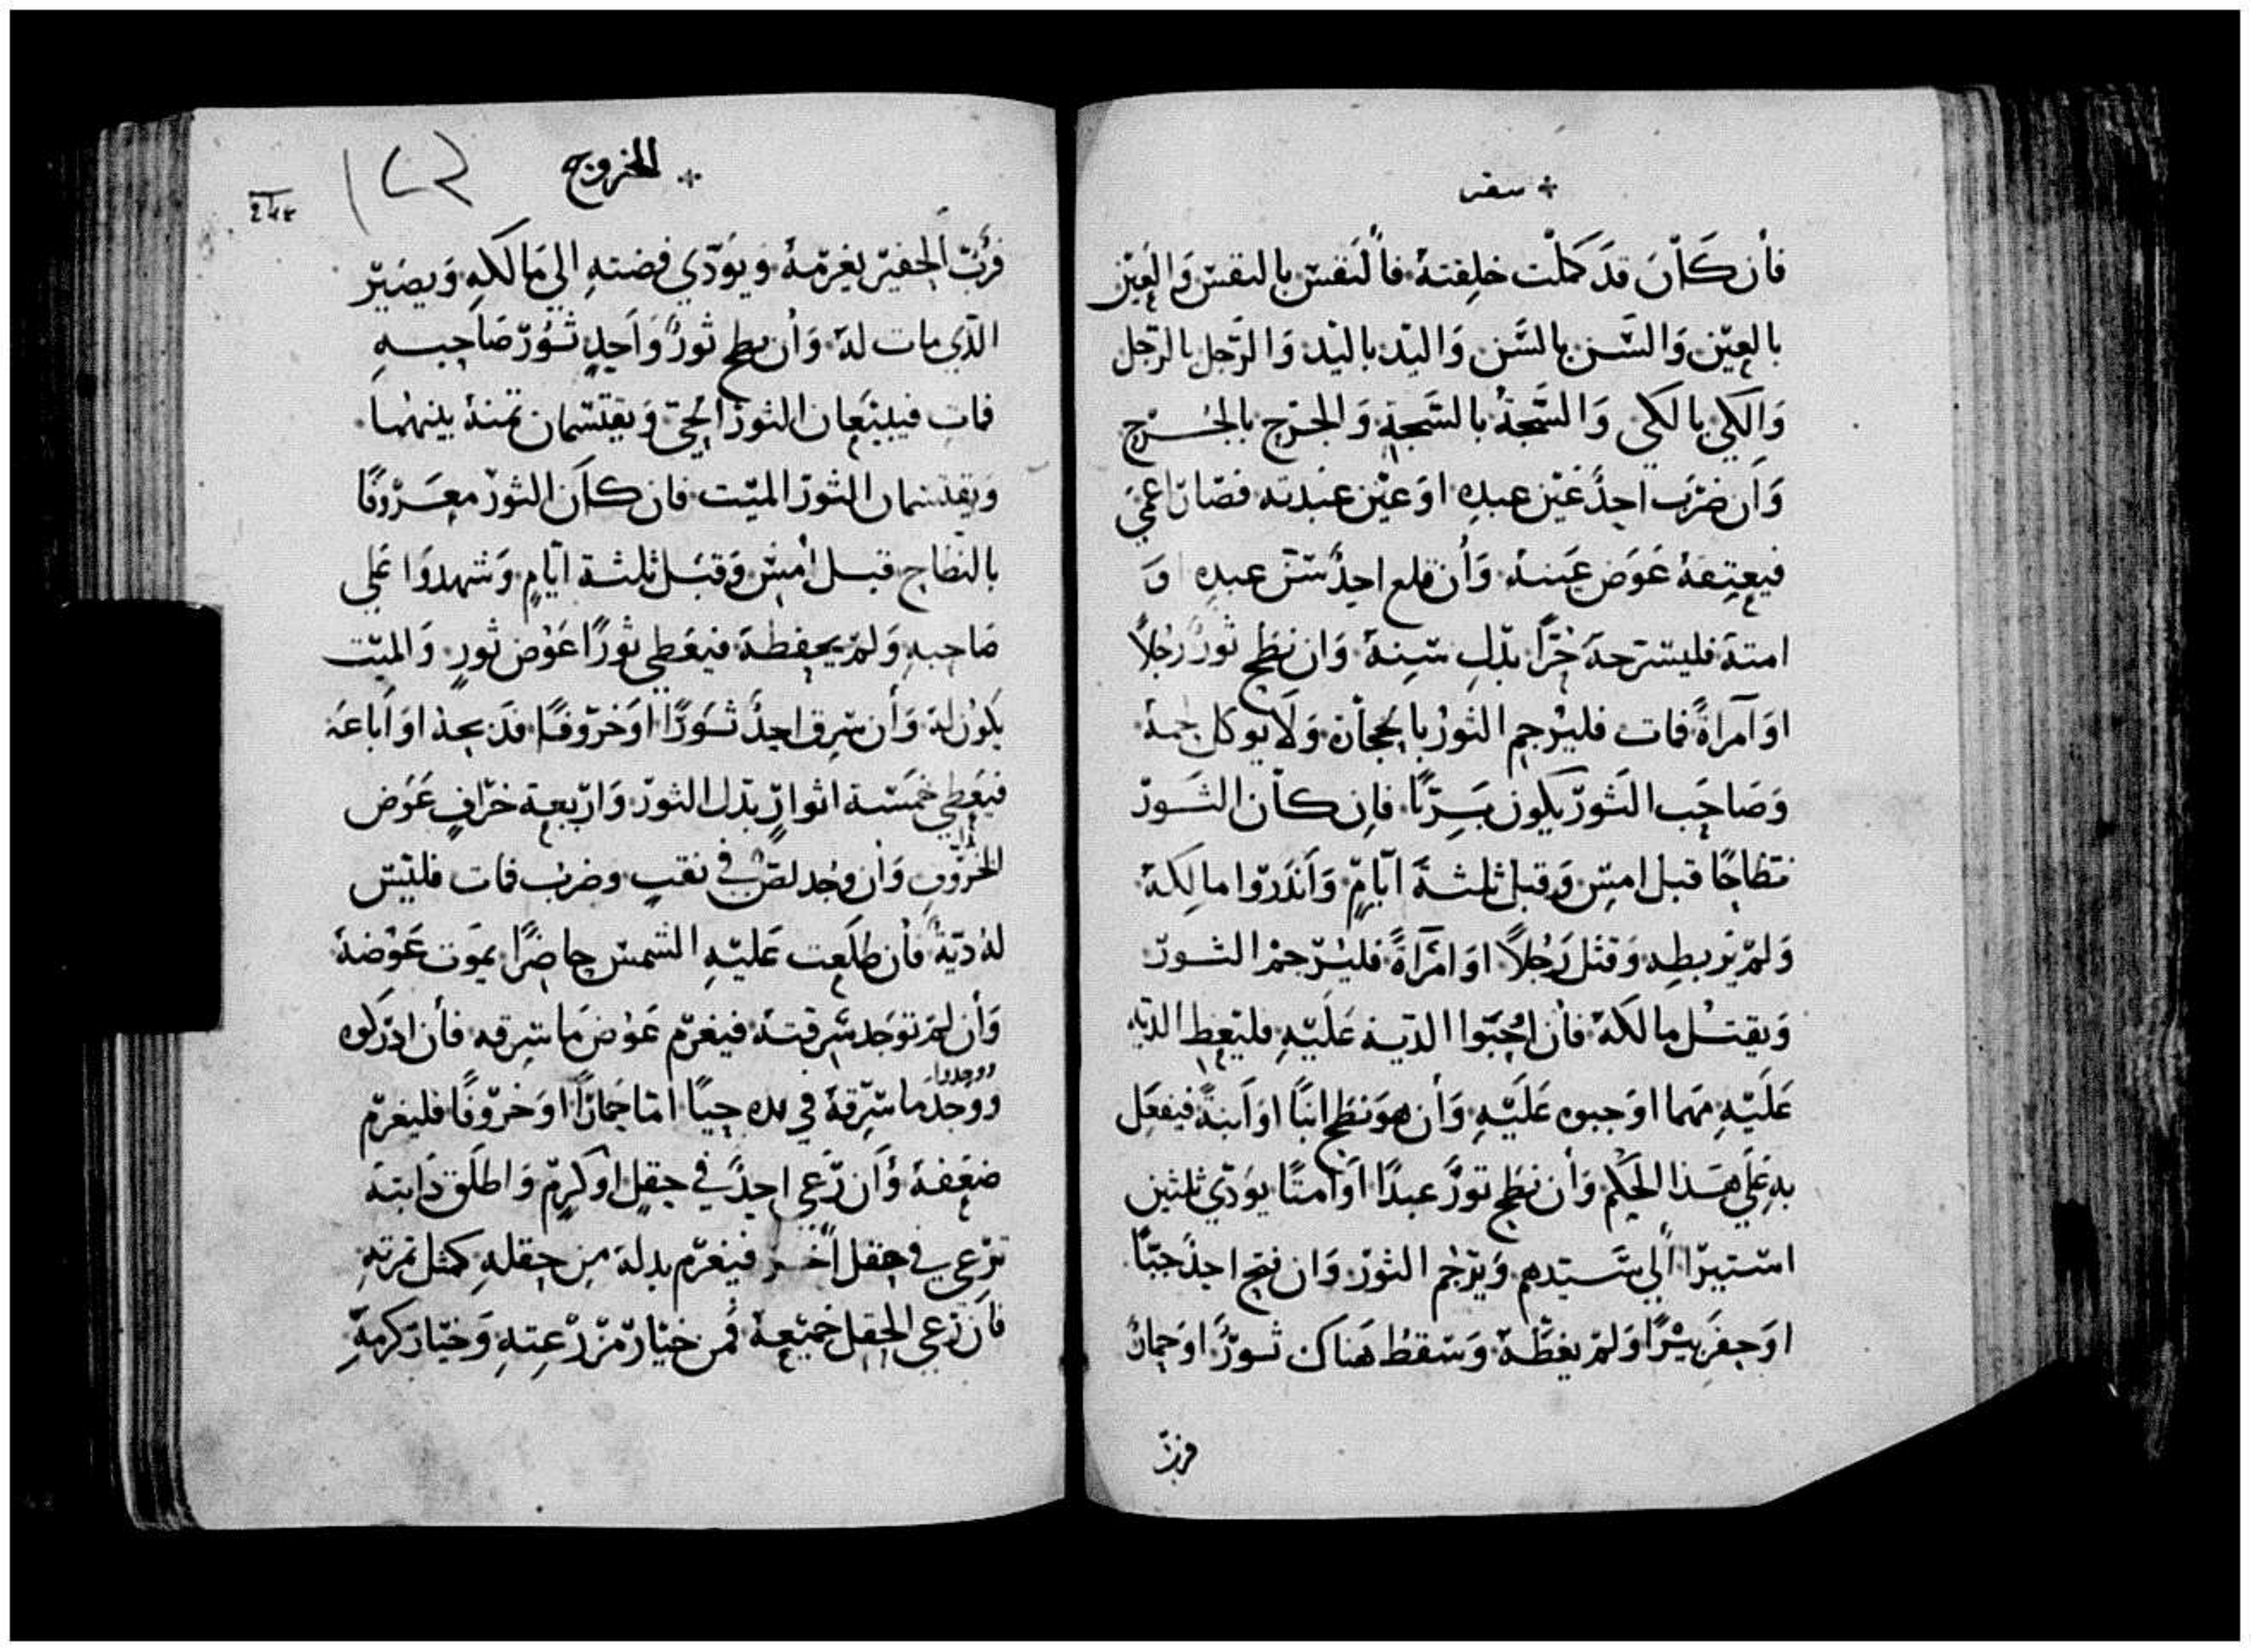 سفر
فأن كَاْنَ قدَ كملْت خلِقتهُ فاْلنَفسّ بالنفسّ وَالعَيّن
بالعيّن وَالسَّن بالسَّن وَاليّد باليّد وَالرّجل بالرّجل
وَالكَي بالكَي وَالشَّجةُ بالشَّجةِ وَالجرّح بالجُرّح
وَاَن ضرَب احدٌ عَيّن عبدِه اوَ عيّن عبّدته فصّارَ اعمَي
فيعتِقهُ عَوَض عَينهُ وَأن قلع احدٌ سّن عبدِه اوَ
امتهَ فليسّرحهَ حُرّاً بدّلِ سّنِهُ وَان نطَح ثورٌ رجُلاً
اوَ آمرَاةً فمات فليُرجم الثوَرُ بالحجاَرة وَلَا يوكل لحمهُ
وَصَاحَب الثَورّ يكَون بَرِيّاً فاِن كاَن الثَورّ
نَطاحًا قبل امسِّ وَقبل ثلثةَ آيَامٍ وَأَنذَرّوا مالِكهُ
وَلمّ يرّبطِه وَقتَل رَجُلاً اوَ امَرآةً فليُرّجمُ الثورّ
وَيقتُل مالكَهُ فأن اوُجَبّوا الديّة عَلَيّهِ فليّعطِ الديّة
عَلَيّهِ مَهما اوَجبوه عَلَيّهِ وَأن هوَ نطَح ابنًا اوَ اَبنةً فيفعَل
بهِ عَلَي هَذا الحَكم وَأن نطَح ثورٌ عبدًا اوَ امتًا يوَدّي ثلثين
اسّتيرّا اَلي سَّيدهم وَيرّجُم الثورّ وَان فتح احدٌ جبّاً
اوَ حفرَ بيّرًا وَلمّ يغطّهُ وَسّقطُ هَناك ثَورٌ اوَ حمارٌ
فرَبّ
الخروج
فرَبّ الحفيّر يغرّمهُ وَيوَدّي فضتهِ الي مَالكَهِ وَيصَيّر
الذّي مات لهُ وَأن نطح ثورٌ وَاحدٍ ثوُرّ صَاَحبهِ
فمات فيبيّعَان الثورّ الحيّ وَيقتسّمان ثمنهُ بينهُما
وَيقتسمان الثورّ الميّت فان كاَن الثورّ معرّوفًا
بالنطاح قبل امسّ وَقبَل ثلثة آيَامٍ وَشَهدوَا عَلي
صَاحبهِ وَلمّ يحفظهَ فيَعَطي ثورًا عَوَض ثورٍ وَالميّت
يكَون لهُ وَأن سّرِق احدٌ ثوَرًا اوَ خرّوفًا فذَبحهُ اوَ اَباعَهُ
فيعَطي خمَسّة اثوارٍ بدّل الثورّ وَارّبعة خرّافٍ عَوَض
الخرّوف وَأن وجُد لصٌّ في نقبٍ وضرب فمات فليّسّ
لهُ ديّةُ فأن طلَعت عَليّهِ الشمسّ حاضرًا يموَت عَوَضهُ
وَأن لمّ توَجد سّرقتهُ فيغرّم عَوَض مَا سّرقه فأن ادرّكوه
ووَجدوا
ووَجدَ مَا سّرِّقهُ في يده حيًا امّا حَمارًا اوَ خرّوفًا فليغرّم
ضعَفهُ وَأَن رَّعي احدٌ في حقلٍ اوَ كرمٍّ وَاطلَق دَابتهُ
ترّعي في حقل اَخر فيغرّم بدلهُ من حقلهِ كمثل ثمرتهِ
فاَن رّعي الحقل جميّعهُ فمن خيّار مزرّعتهِ وَخيّار كَرمهِ